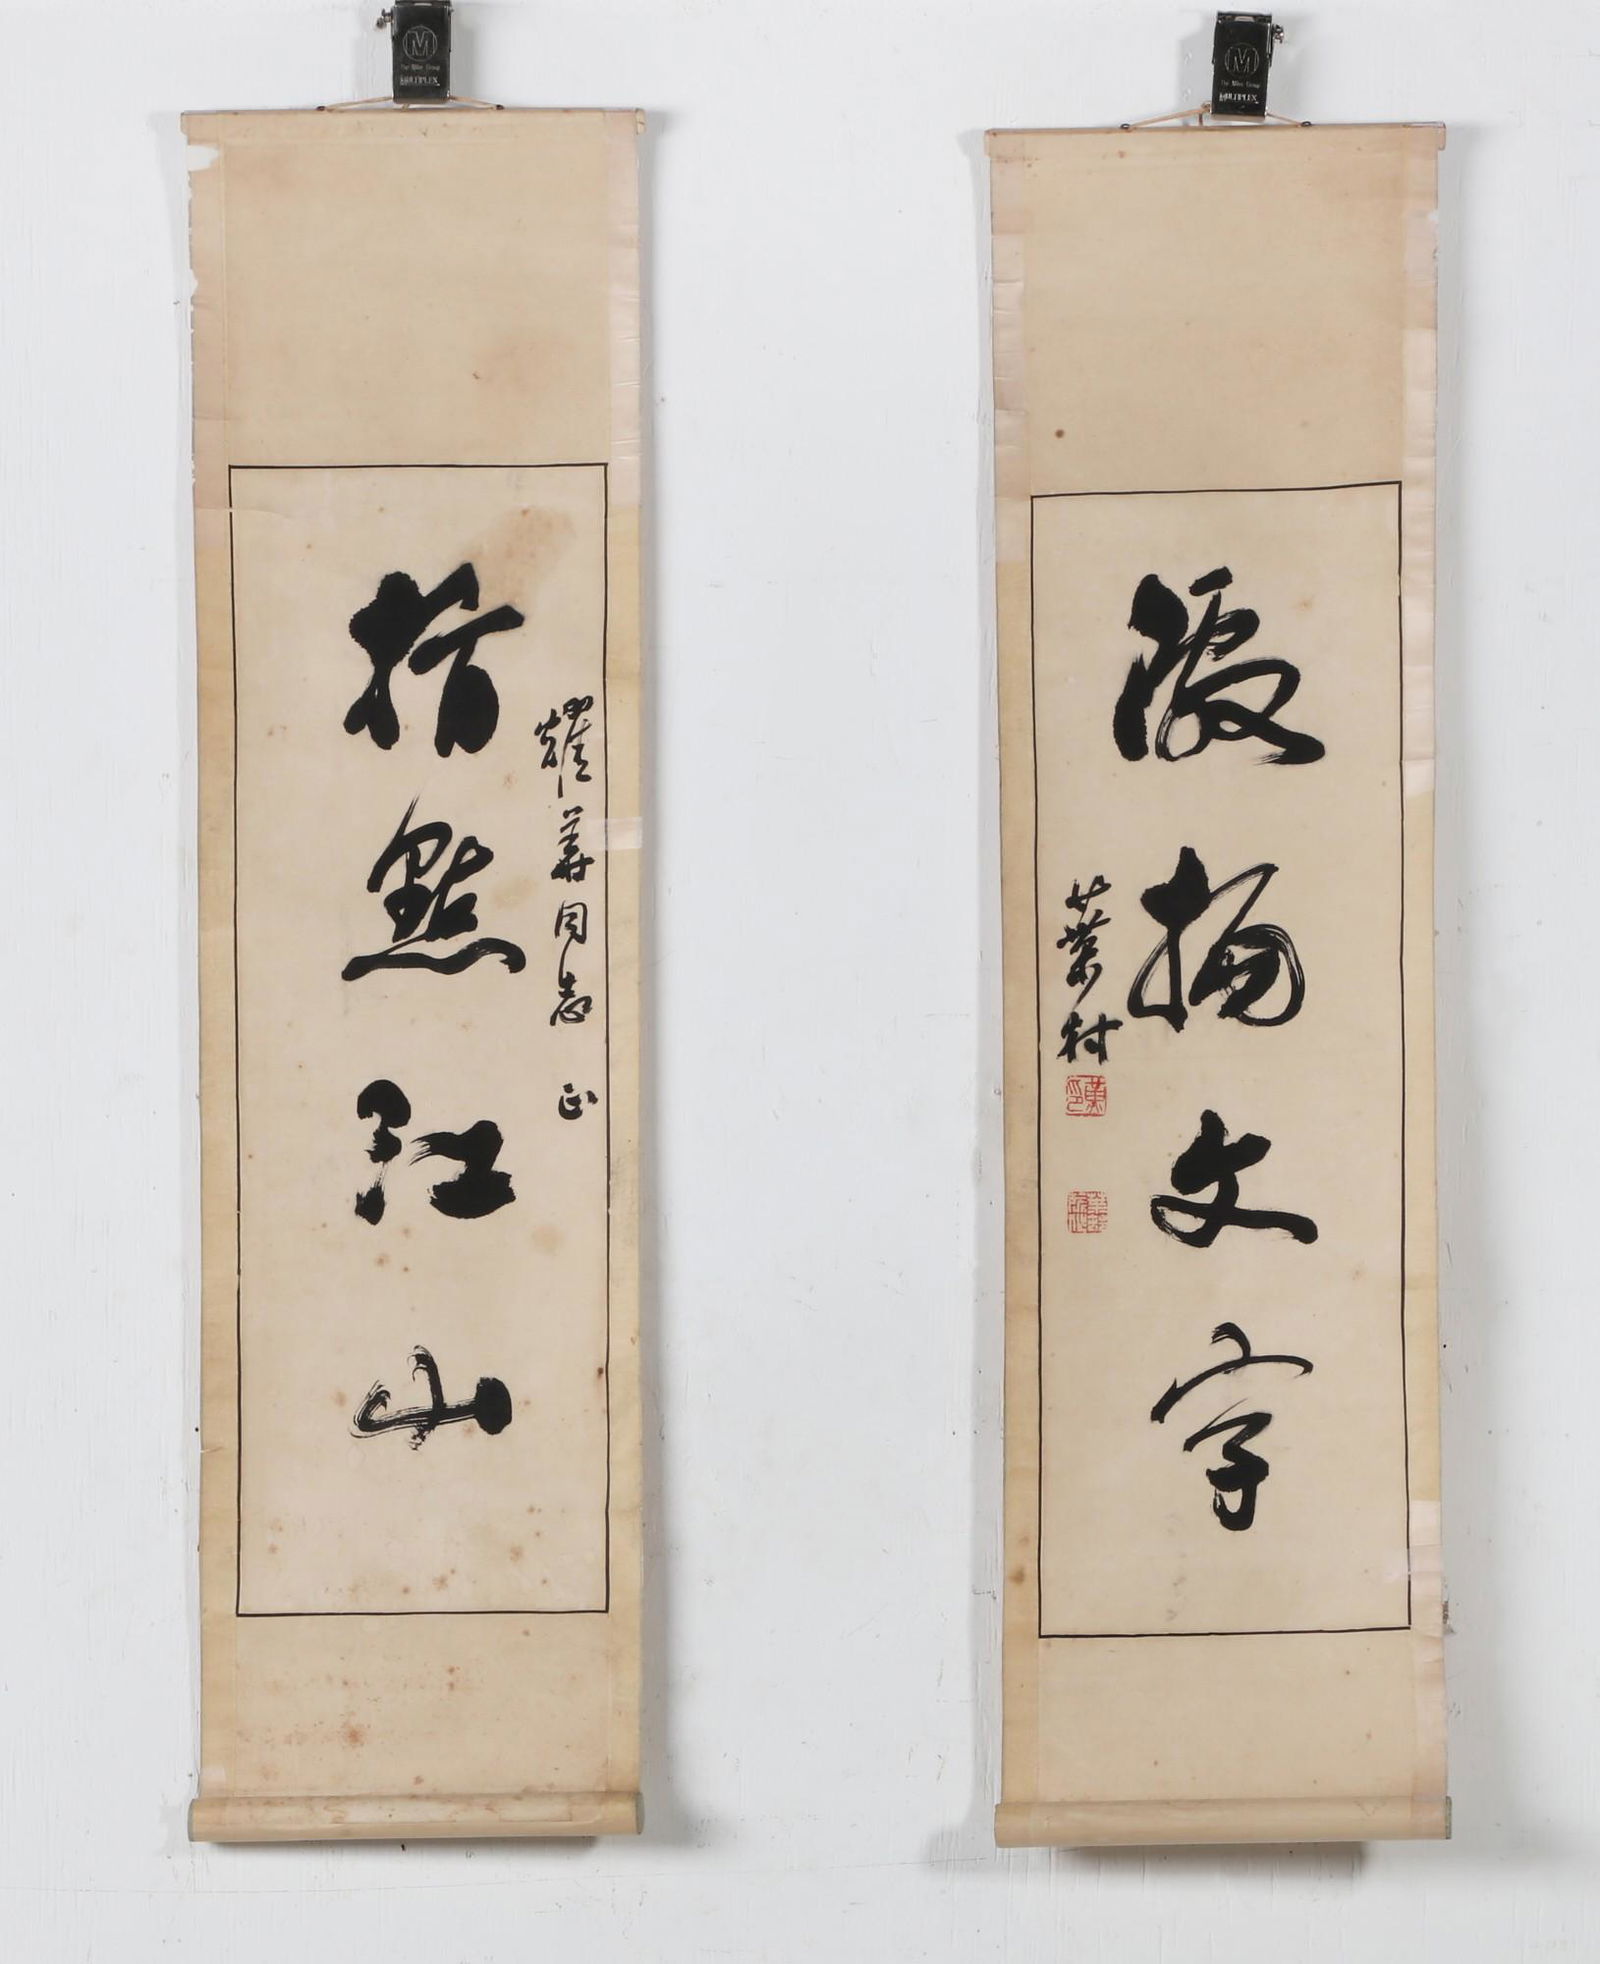 M
The Miller Group
MULTIPLEX
M
The Miller Group
MULTIPLEX
耀華同志 正
指點江山
激揚文字
葉村